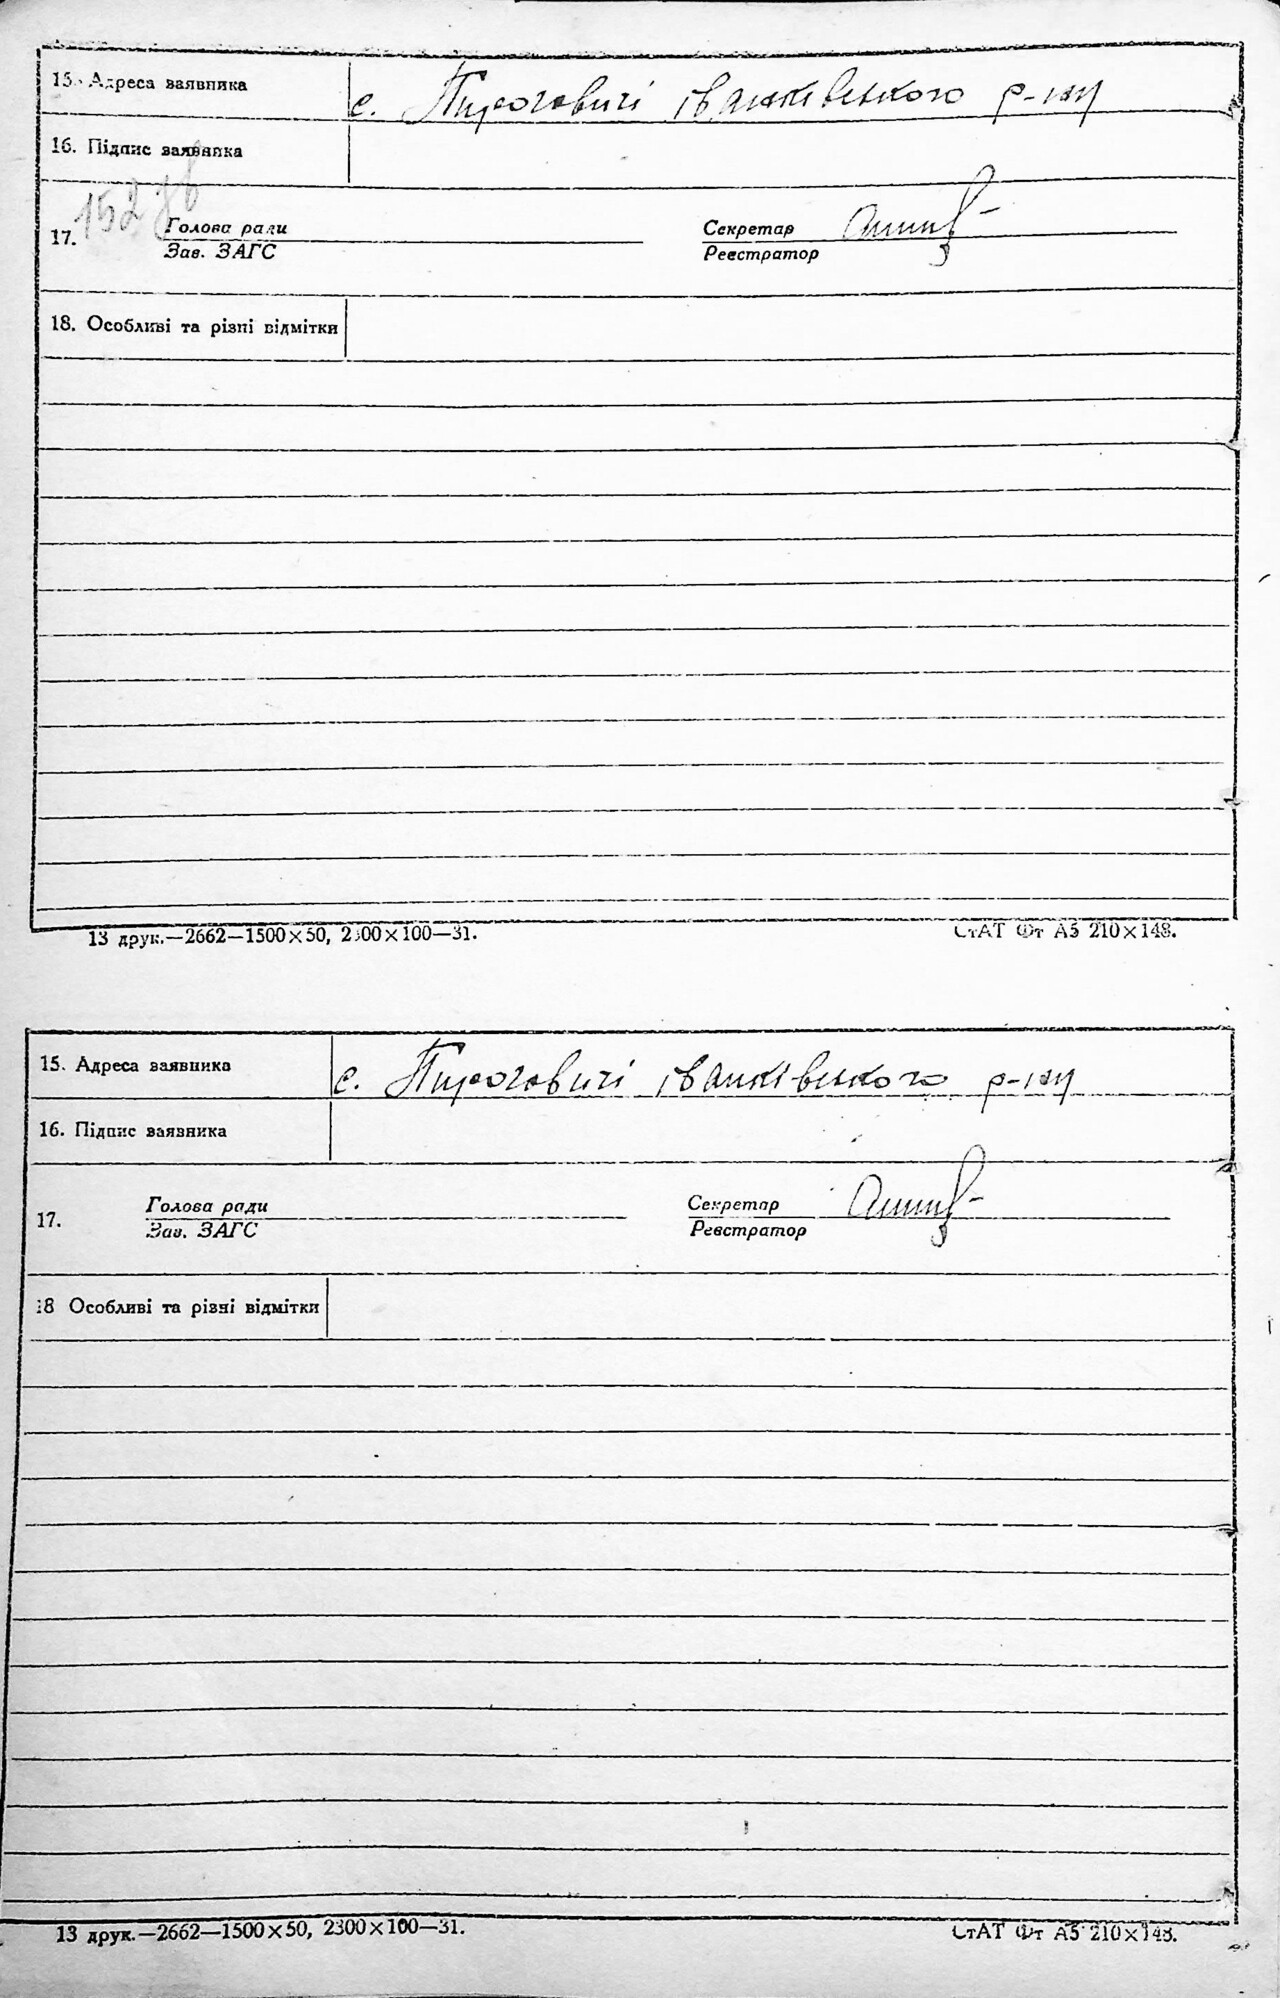 15. Адреса заявника с. Пироговичі іванківського р-ну
16. Підпис заявника
152 зв
17. Голова ради Секретар
Зав. ЗАГС Реєстратор
18. Особливі та різні відмітки
13 друк.—2662—1500×50, 2300×100—31. СтАТ Фт А5 210×148.
15. Адреса заявника с. Пироговичі іванківського р-ну
16. Підпис заявника
17. Голова ради Секретар
Зав. ЗАГС Реєстратор
18 Особливі та різні відмітки
13 друк.—2662—1500×50, 2300×100—31. СтАТ Фт А5 210×148.